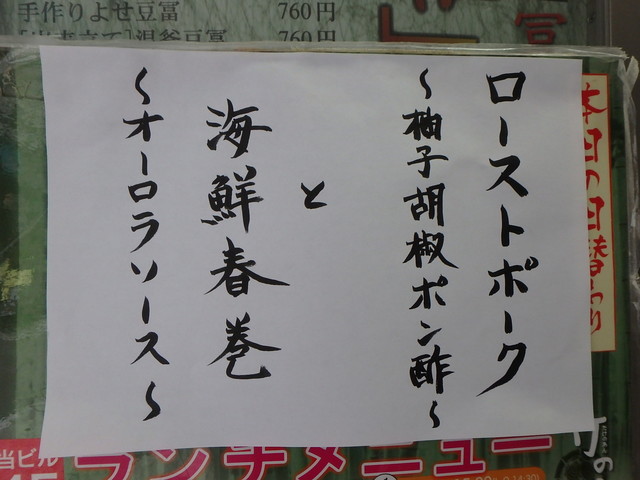 手作りよせ豆冨 760円
760円
ローストポーク
〜柚子胡椒ポン酢〜
と
海鮮春巻
〜オーロラソース〜
本日の日替わり
当ビル
ランチメニュー